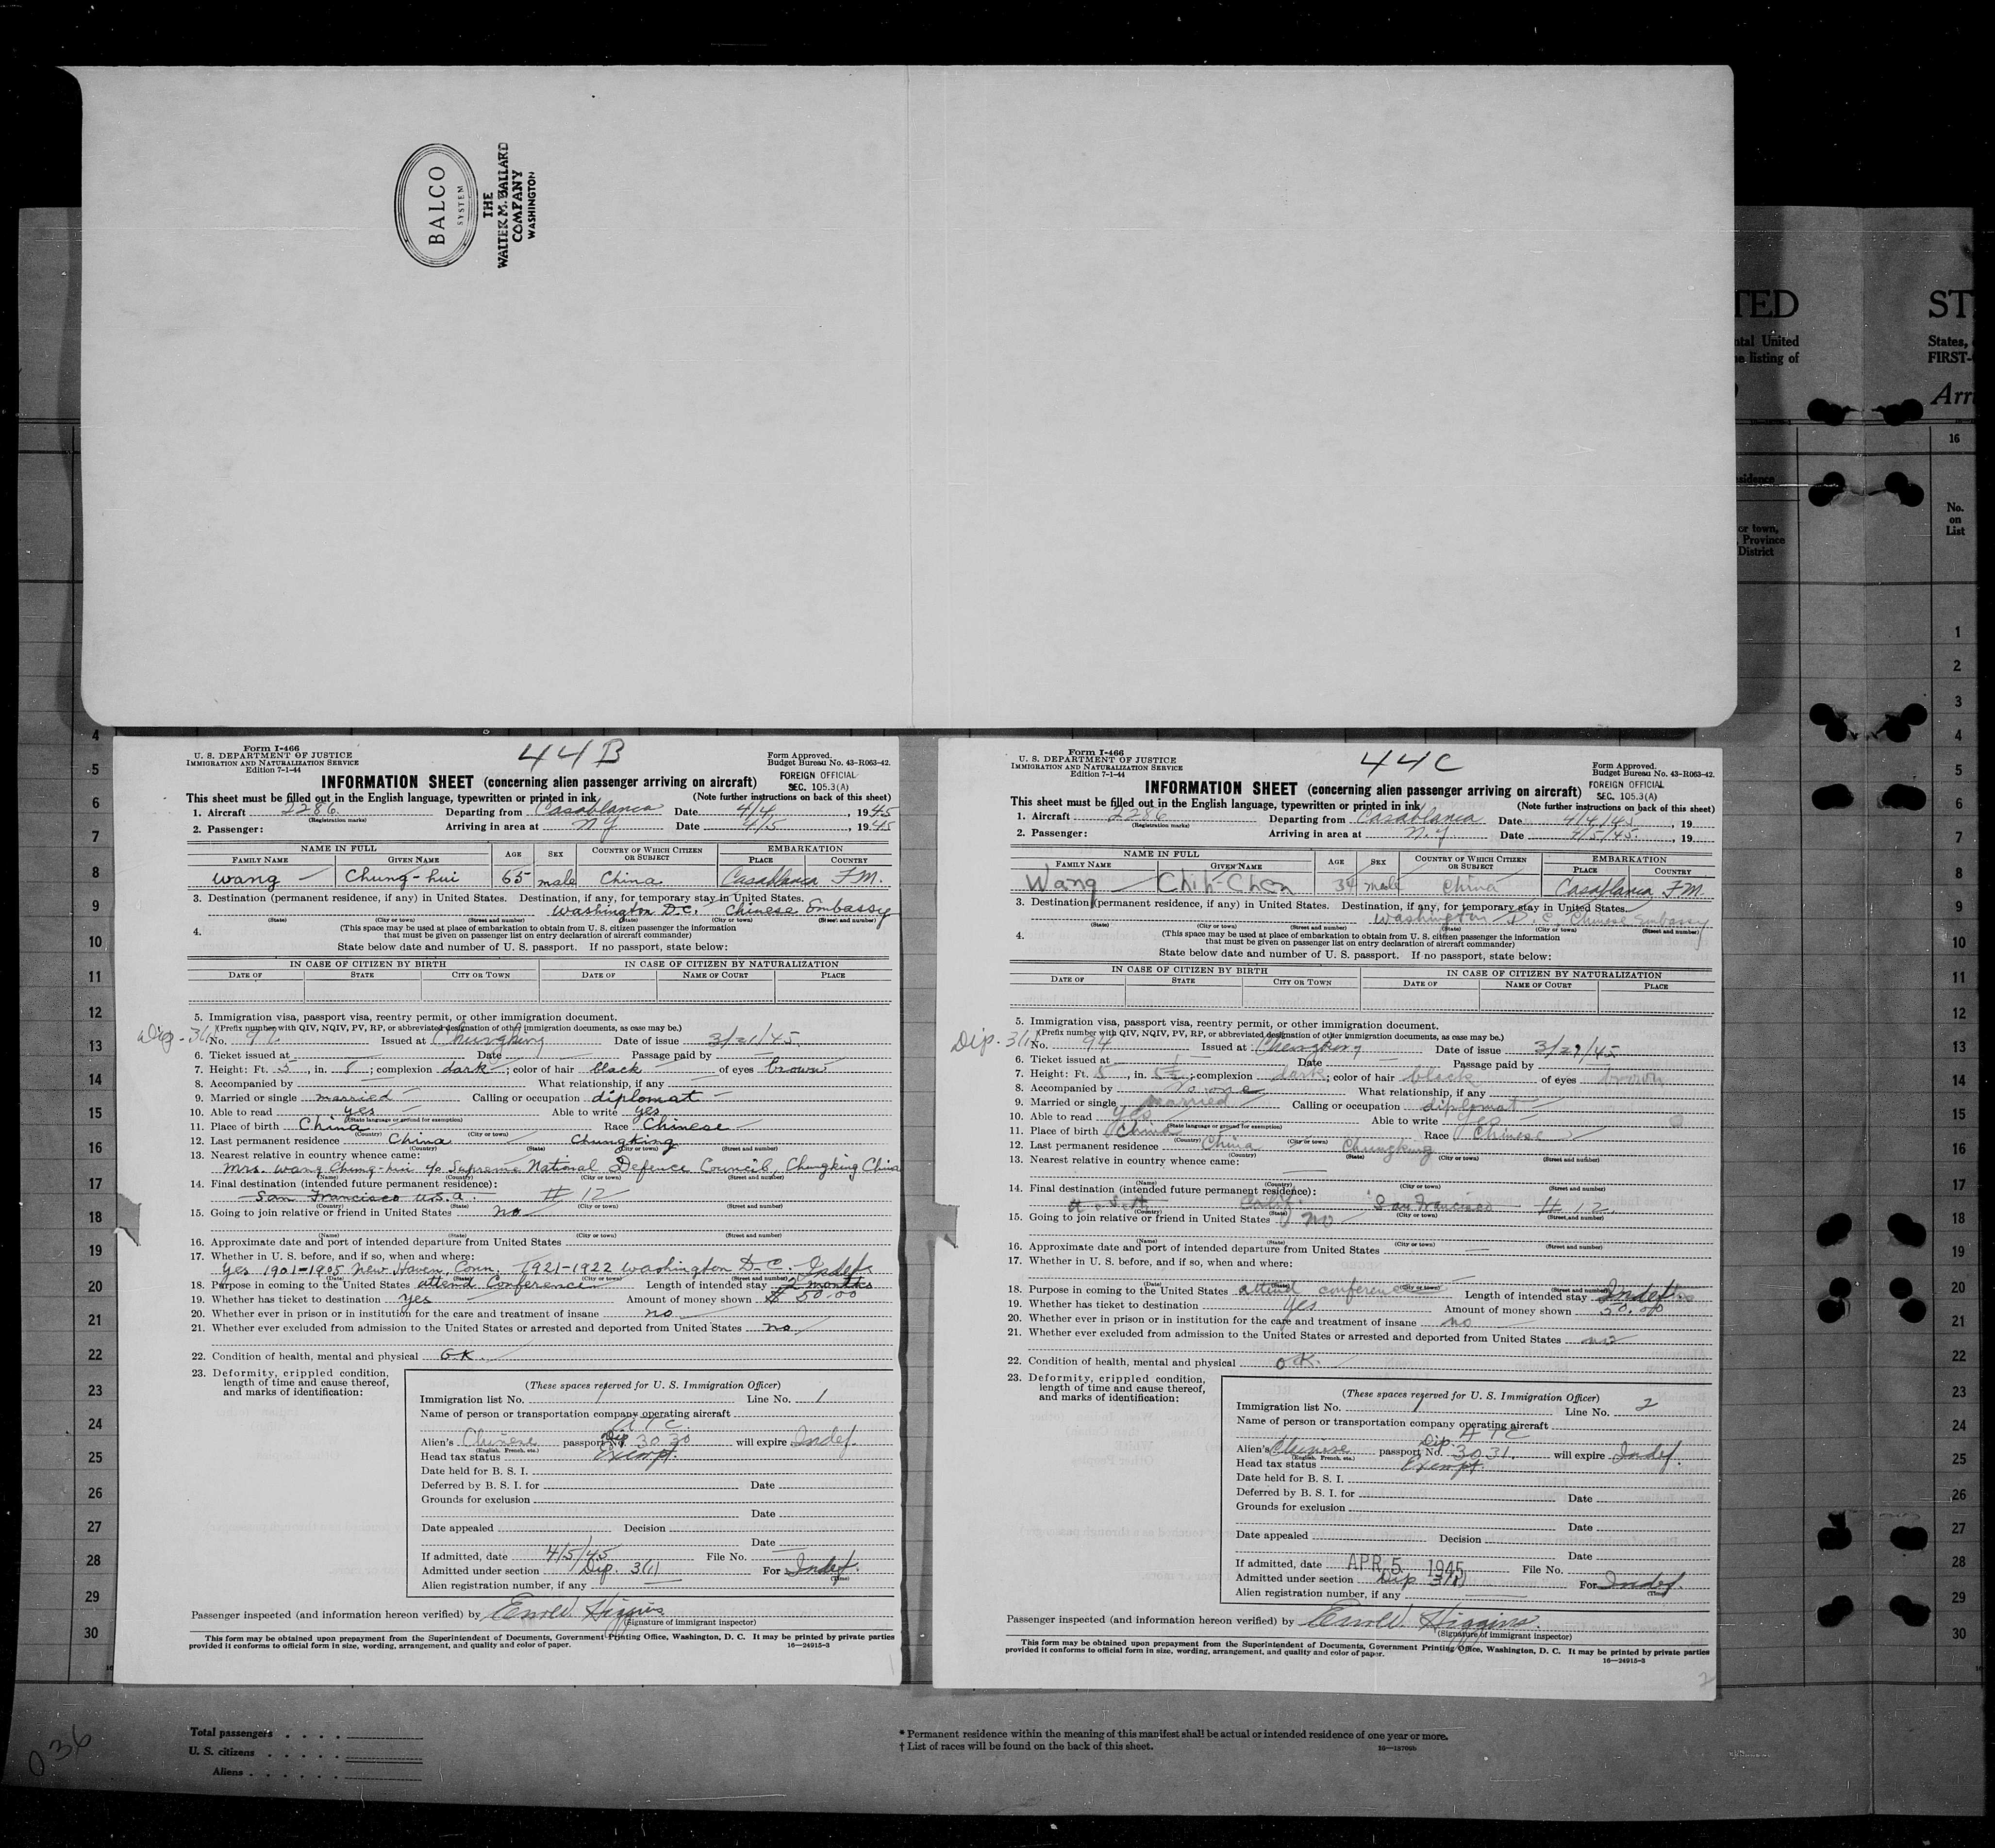 BALCO
SYSTEM
THE
WALTER M. BALLARD
COMPANY
WASHINGTON
TED
ntal United
e listing of
sidence
or town,
Province
District
ST
States,
FIRST-
Arri
16
No.
on
List
44B
Form I-466
U. S. DEPARTMENT OF JUSTICE
IMMIGRATION AND NATURALIZATION SERVICE
Edition 7-1-44
Form Approved.
Budget Bureau No. 43-R063-42.
FOREIGN OFFICIAL
SEC. 105.3(A)
INFORMATION SHEET (concerning alien passenger arriving on aircraft)
This sheet must be filled out in the English language, typewritten or printed in ink (Note further instructions on back of this sheet)
1. Aircraft 2286 Departing from Casablanca Date 4/4, 1945
(Registration marks)
2. Passenger: Arriving in area at N.Y Date 4/5, 1945
NAME IN FULL AGE SEX COUNTRY OF WHICH CITIZEN OR SUBJECT EMBARKATION
FAMILY NAME GIVEN NAME PLACE COUNTRY
Wang Chung-hui 65 male China Casablanca F.M.
3. Destination (permanent residence, if any) in United States. Destination, if any, for temporary stay in United States.
Washington D.C. Chinese Embassy
(State) (City or town) (Street and number) (State) (City or town) (Street and number)
4. (This space may be used at place of embarkation to obtain from U. S. citizen passenger the information
that must be given on passenger list on entry declaration of aircraft commander)
State below date and number of U. S. passport. If no passport, state below:
IN CASE OF CITIZEN BY BIRTH IN CASE OF CITIZEN BY NATURALIZATION
DATE OF STATE CITY OR TOWN DATE OF NAME OF COURT PLACE
5. Immigration visa, passport visa, reentry permit, or other immigration document.
(Prefix number with QIV, NQIV, PV, RP, or abbreviated designation of other immigration documents, as case may be.)
Dip. 3(1) No. Issued at Chungking Date of issue 3/21/45
6. Ticket issued at Date Passage paid by
7. Height: Ft. 5, in. 5; complexion dark; color of hair black of eyes brown
8. Accompanied by What relationship, if any
9. Married or single married Calling or occupation diplomat
10. Able to read yes Able to write yes
(State language or ground for exemption)
11. Place of birth China Race Chinese
(Country) (City or town)
12. Last permanent residence China Chungking
(Country) (City or town) (Street and number)
13. Nearest relative in country whence came:
Mrs. Wang Chung-hui c/o Supreme National Defence Council, Chungking China
(Name) (Country) (City or town) (Street and number)
14. Final destination (intended future permanent residence):
San Francisco U.S.A. # 12
(Country) (State) (City or town) (Street and number)
15. Going to join relative or friend in United States no
(Name) (State) (City or town) (Street and number)
16. Approximate date and port of intended departure from United States
17. Whether in U. S. before, and if so, when and where:
yes 1901-1905 New Haven, Conn. 1921-1922 Washington D.C. Indef.
(Date) (State) (City or town) (Street and number)
18. Purpose in coming to the United States attend Conference Length of intended stay 2 months
19. Whether has ticket to destination yes Amount of money shown $ 50.00
20. Whether ever in prison or in institution for the care and treatment of insane no
21. Whether ever excluded from admission to the United States or arrested and deported from United States no
22. Condition of health, mental and physical O.K.
23. Deformity, crippled condition,
length of time and cause thereof,
and marks of identification:
(These spaces reserved for U. S. Immigration Officer)
Immigration list No. 1 Line No. 1
Name of person or transportation company operating aircraft
ATC
Alien's Chinese passport No. Dip. 3030 will expire Indef.
(English, French, etc.)
Head tax status Exempt.
Date held for B. S. I.
Deferred by B. S. I. for Date
Grounds for exclusion
Date
Date appealed Decision
Date
If admitted, date 4/5/45 File No.
Admitted under section Dip. 3(1) For Indef.
(Time)
Alien registration number, if any
Passenger inspected (and information hereon verified) by Errol W. Higgins
(Signature of immigrant inspector)
This form may be obtained upon prepayment from the Superintendent of Documents, Government Printing Office, Washington, D. C. It may be printed by private parties
provided it conforms to official form in size, wording, arrangement, and quality and color of paper. 16—24915-3
44C
Form I-466
U. S. DEPARTMENT OF JUSTICE
IMMIGRATION AND NATURALIZATION SERVICE
Edition 7-1-44
Form Approved.
Budget Bureau No. 43-R063-42.
FOREIGN OFFICIAL
SEC. 105.3(A)
INFORMATION SHEET (concerning alien passenger arriving on aircraft)
This sheet must be filled out in the English language, typewritten or printed in ink (Note further instructions on back of this sheet)
1. Aircraft 2286 Departing from Casablanca Date 4/4/45, 19
(Registration marks)
2. Passenger: Arriving in area at N.Y Date 4/5/45, 19
NAME IN FULL AGE SEX COUNTRY OF WHICH CITIZEN OR SUBJECT EMBARKATION
FAMILY NAME GIVEN NAME PLACE COUNTRY
Wang Chih-Chen 34 male China Casablanca F.M.
3. Destination (permanent residence, if any) in United States. Destination, if any, for temporary stay in United States.
Washington D.C. Chinese Embassy
(State) (City or town) (Street and number) (State) (City or town) (Street and number)
4. (This space may be used at place of embarkation to obtain from U. S. citizen passenger the information
that must be given on passenger list on entry declaration of aircraft commander)
State below date and number of U. S. passport. If no passport, state below:
IN CASE OF CITIZEN BY BIRTH IN CASE OF CITIZEN BY NATURALIZATION
DATE OF STATE CITY OR TOWN DATE OF NAME OF COURT PLACE
5. Immigration visa, passport visa, reentry permit, or other immigration document.
(Prefix number with QIV, NQIV, PV, RP, or abbreviated designation of other immigration documents, as case may be.)
Dip. 3(1) No. 94 Issued at Chungking Date of issue 3/29/45
6. Ticket issued at Date Passage paid by
7. Height: Ft. 5, in. 5½; complexion dark; color of hair black of eyes brown
8. Accompanied by No one What relationship, if any
9. Married or single married Calling or occupation diplomat
10. Able to read yes Able to write yes
(State language or ground for exemption)
11. Place of birth China Race Chinese
(Country) (City or town)
12. Last permanent residence China Chungking
(Country) (State) (City or town) (Street and number)
13. Nearest relative in country whence came:
(Name) (Country) (City or town) (Street and number)
14. Final destination (intended future permanent residence):
U.S.A. Calif. San Francisco # 12
(Country) (State) (City or town) (Street and number)
15. Going to join relative or friend in United States no
(Name) (State) (City or town) (Street and number)
16. Approximate date and port of intended departure from United States
17. Whether in U. S. before, and if so, when and where:
(Date) (City or town) (Street and number)
18. Purpose in coming to the United States attend conference Length of intended stay Indef.
19. Whether has ticket to destination yes Amount of money shown 50.00
20. Whether ever in prison or in institution for the care and treatment of insane no
21. Whether ever excluded from admission to the United States or arrested and deported from United States no
22. Condition of health, mental and physical O.K.
23. Deformity, crippled condition,
length of time and cause thereof,
and marks of identification:
(These spaces reserved for U. S. Immigration Officer)
Immigration list No. 1 Line No. 2
Name of person or transportation company operating aircraft
ATC
Alien's Chinese passport No. Dip. 3031. will expire Indef.
(English, French, etc.)
Head tax status Exempt.
Date held for B. S. I.
Deferred by B. S. I. for Date
Grounds for exclusion
Date
Date appealed Decision
Date
If admitted, date APR 5 1945 File No.
Admitted under section Dip 3(1) For Indef.
Alien registration number, if any
Passenger inspected (and information hereon verified) by Errol W. Higgins.
(Signature of immigrant inspector)
This form may be obtained upon prepayment from the Superintendent of Documents, Government Printing Office, Washington, D. C. It may be printed by private parties
provided it conforms to official form in size, wording, arrangement, and quality and color of paper.
16—24915-3
2
4
5
6
7
8
9
10
11
12
13
14
15
16
17
18
19
20
21
22
23
24
25
26
27
28
29
30
1
2
3
4
5
6
7
8
9
10
11
12
13
14
15
16
17
18
19
20
21
22
23
24
25
26
27
28
29
30
036
Total passengers
U. S. citizens
Aliens
* Permanent residence within the meaning of this manifest shall be actual or intended residence of one year or more.
† List of races will be found on the back of this sheet.